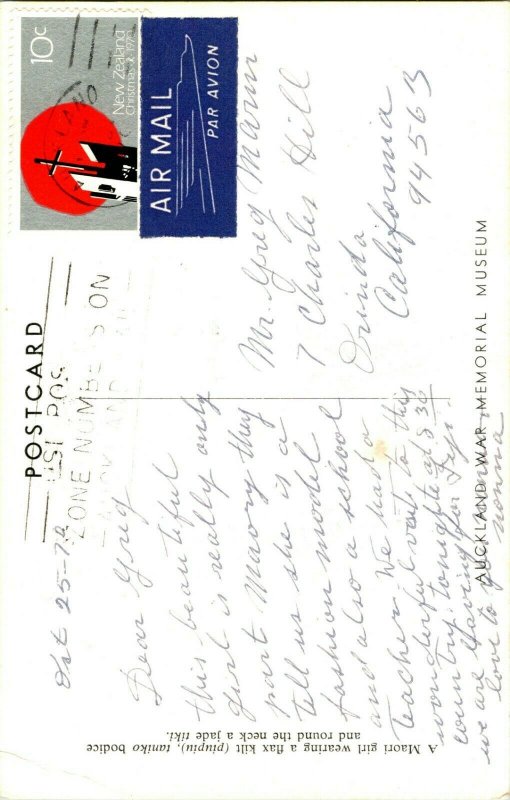 10c
New Zealand
Christmas 1970
AIR MAIL
PAR AVION
POSTCARD
USE POS
ZONE NUMBERS ON
Oct 25-70
Dear Greg
this beautiful
girl is really only
part Maory they
tell us she is a
fashion model
and also a school
teacher. We had a
wonderful visit to this
country. tonighte at 8 30
we are leaving for Fiji
love to you nonna
Mr. Greg Mann
7 Charles Hill
Orinda
California
94563
AUCKLAND WAR MEMORIAL MUSEUM
A Maori girl wearing a flax kilt (piupiu), taniko bodice
and round the neck a jade tiki.